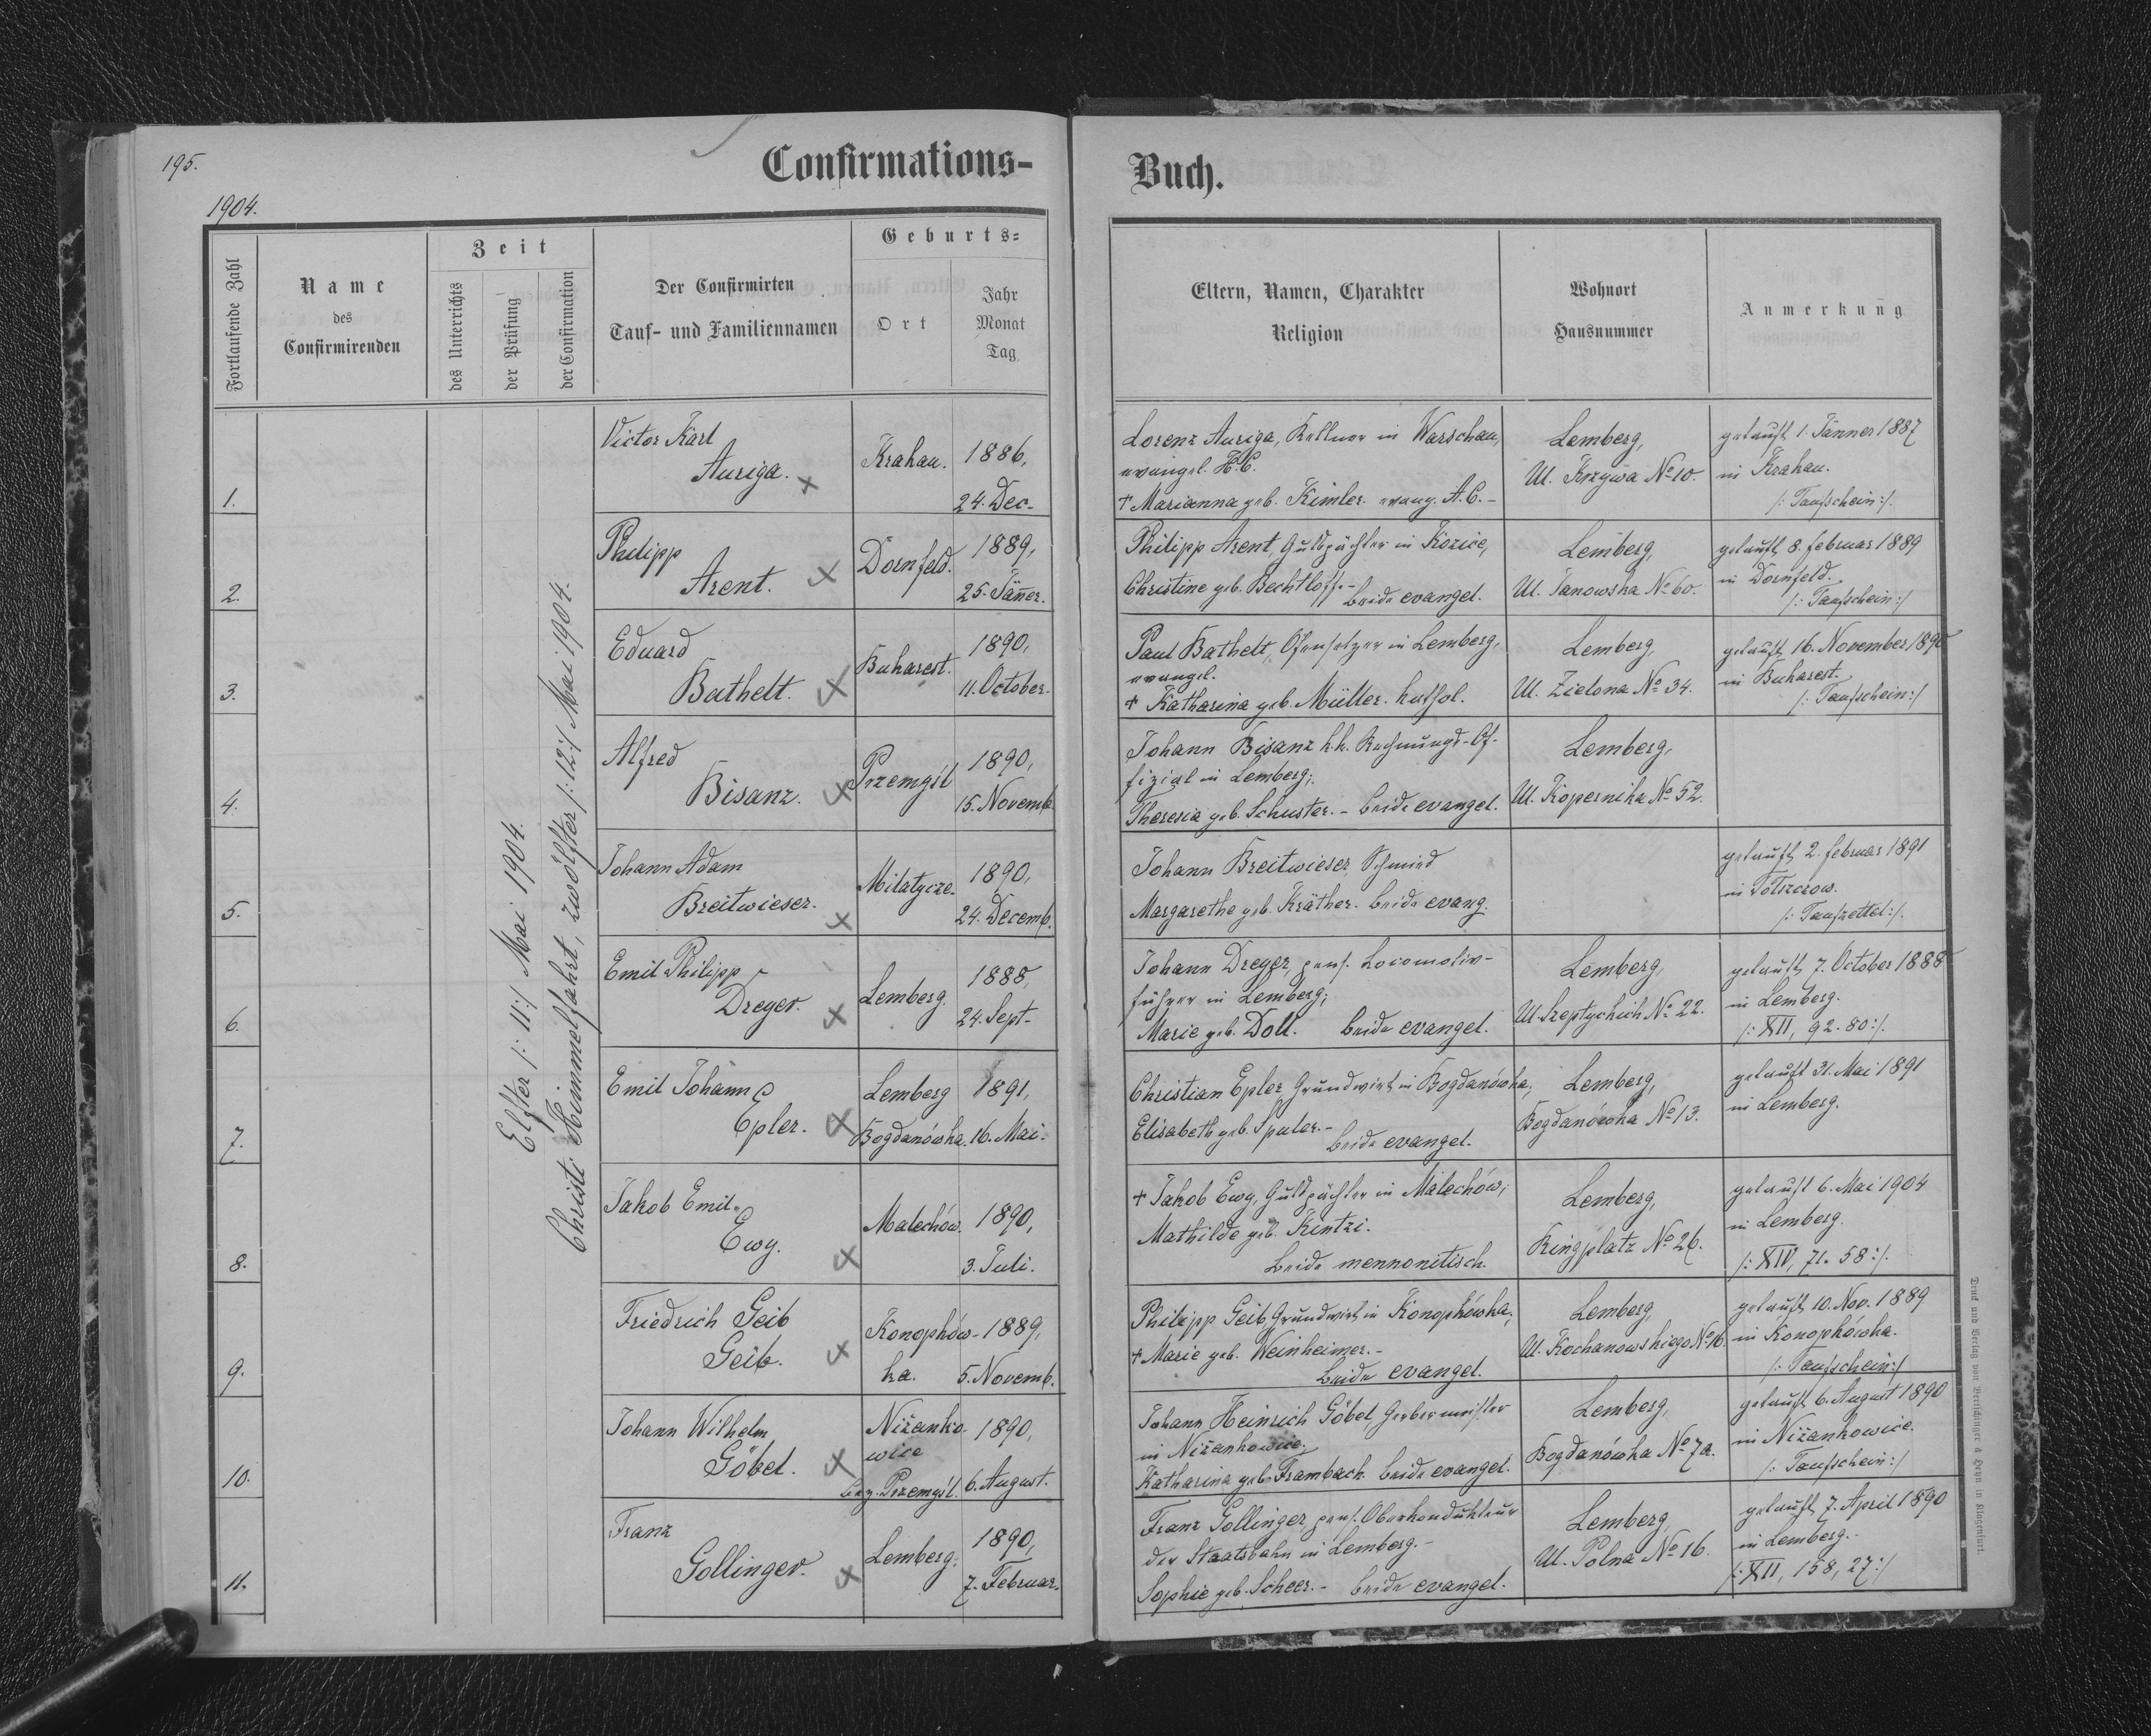 195.
Confirmations-
Buch.
1904.
Fortlaufende Zahl
Name
des
Confirmirenden
Zeit
des Unterrichts
der Prüfung
der Confirmation
Der Confirmirten
Tauf- und Familiennamen
Geburts-
Ort
Jahr
Monat
Tag
Eltern, Namen, Charakter
Religion
Wohnort
Hausnummer
Anmerkung
Elfter /: 11 :/ Mai 1904.
Christi Himmelfahrt, zwölfter /: 12 :/ Mai 1904.
1.
Victor Karl
Auriga. x
Krakau.
1886,
24. Dec.
Lorenz Auriga, Kellner in Warschau,
evangel. H.C.
† Marianna geb. Kimler. evang. A.C. -
Lemberg,
Ul. Krzywa No 10.
getauft 1. Jänner 1887
in Krakau.
/: Taufschein :/.
2.
Philipp
Arent. x
Dornfeld.
1889,
25. Jäner.
Philipp Arent, Gutspächter in Kozice,
Christine geb. Bechtloff. -
beide evangel.
Lemberg,
Ul. Janowska No 60.
getauft 8. Februar 1889
in Dornfeld.
/: Taufschein :/
3.
Eduard
Bathelt. x
Bukarest.
1890,
11. October.
Paul Bathelt, Ofensetzer in Lemberg,
evangel.
† Katharina geb. Müller. kathol.
Lemberg,
Ul. Zielona No 34.
getauft 16. November 1890
in Bukarest.
/: Taufschein :/
4.
Alfred
Bisanz. x
Przemyśl
1890,
15. Novemb.
Johann Bisanz k.k. Rechnungs-Of-
fizial in Lemberg;
Theresia geb. Schuster. - beide evangel.
Lemberg,
Ul. Kopernika No 52.
5.
Johann Adam
Breitwieser. x
Milatycze.
1890,
24. Decemb.
Johann Breitwieser, Schmied
Margarethe geb. Kräther. beide evang.
getauft 2. Februar 1891
in
/: Taufzettel :/.
6.
Emil Philipp
Dreyer. x
Lemberg.
1888,
24. Sept.
Johann Dreyer, pens. Locomotiv-
führer in Lemberg;
Marie geb. Doll. beide evangel.
Lemberg,
Ul. Szeptyckich No 22.
getauft 7. October 1888
in Lemberg.
/: XII, 92. 80 :/.
7.
Emil Johann
Epler. x
Lemberg
Bogdanówka.
1891,
16. Mai.
Christian Epler Grundwirt in Bogdanówka,
Elisabeth geb. Spuler. -
beide evangel.
Lemberg,
Bogdanówka No 13.
getauft 31. Mai 1891
in Lemberg.
8.
Jakob Emil
Ewy. x
Malechów.
1890,
3. Juli.
† Jakob Ewy, Gutspächter in Malechów,
Mathilde geb. Kintzi.
beide mennonitisch.
Lemberg,
Ringplatz No 26.
getauft 6. Mai 1904
in Lemberg.
/: XIV, 71. 58 :/.
9.
Friedrich Geib
Geib. x
Konopków-
ka.
1889,
5. Novemb.
Philipp Geib Grundwirt in Konopkówka,
† Marie geb. Weinheimer. -
beide evangel.
Lemberg,
Ul. Kochanowskiego No 16.
getauft 10. Nov. 1889
in Konopkówka.
/: Taufschein :/
10.
Johann Wilhelm
Göbel. x
Niżanko-
wice
bez. Przemyśl.
1890,
6. August.
Johann Heinrich Göbel, Gerbermeister
in Niżankowice;
Katharina geb. Frambach. beide evangel.
Lemberg,
Bogdanówka No 7a.
getauft 6. August 1890
in Niżankowice.
/: Taufschein :/
11.
Franz
Gollinger. x
Lemberg.
1890,
7. Februar.
Franz Gollinger, pens. Oberkondukteur
der Staatsbahn in Lemberg. -
Sophie geb. Scheer. - beide evangel.
Lemberg,
Ul. Polna No 16.
getauft 7. April 1890
in Lemberg. -
/: XII, 158, 27 :/
Druck und Verlag von Bertschinger & Heyn in Klagenfurt.